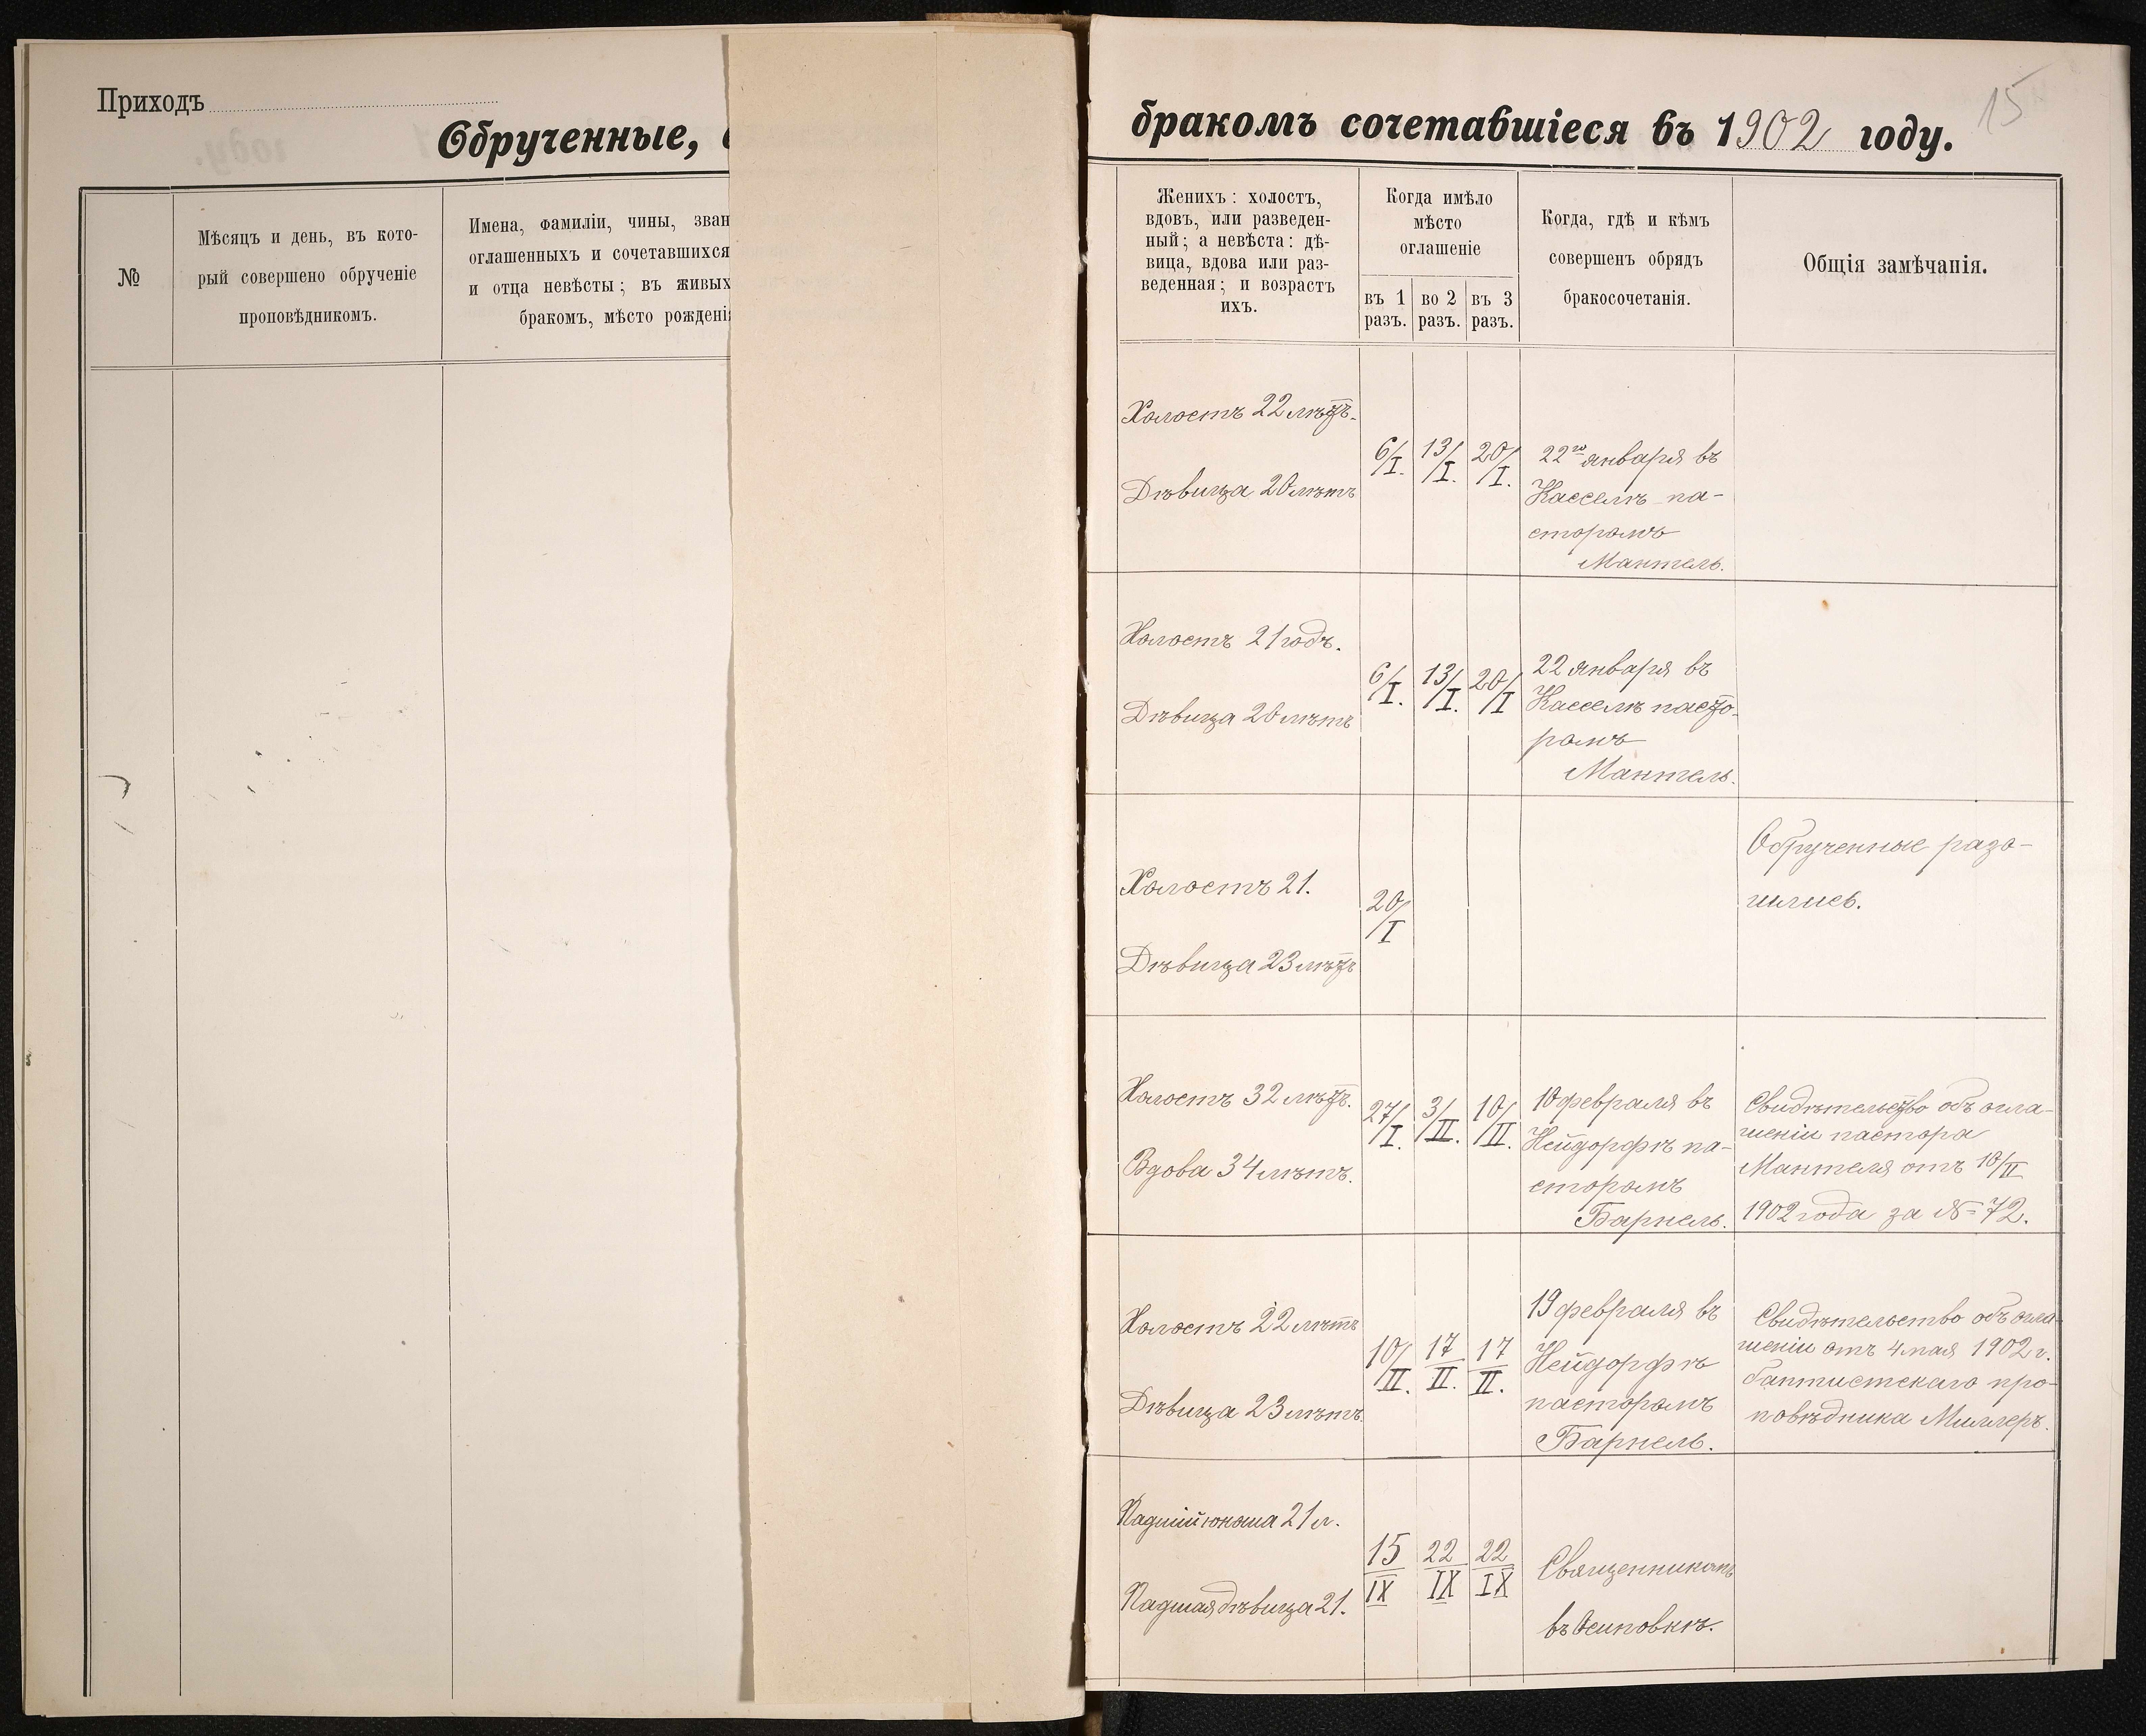 Приходъ
Обрученные,
№
Мѣсяцъ и день, въ кото-
рый совершено обрученіе
проповѣдникомъ.
Имена, фамиліи, чины, зван
оглашенныхъ и сочетавшихся
и отца невѣсты; въ живых
бракомъ, мѣсто рожденi
15
бракомъ сочетавшіеся въ 1902 году.
Женихъ: холостъ,
вдовъ, или разведен-
ный; а невѣста: дѣ-
вица, вдова или раз-
веденная; и возрастъ
ихъ.
Когда имѣло
мѣсто
оглашеніе
въ 1
разъ.
во 2
разъ.
въ 3
разъ.
Когда, гдѣ и кѣмъ
совершенъ обрядъ
бракосочетанія.
Общія замѣчанія.
Холостъ 22 лѣтъ.
Дѣвица 20 лѣтъ
6/I.
13/I.
20/I.
22го января въ
Касселѣ па-
сторомъ
Мантель.
Холостъ 21 годъ.
Дѣвица 20 лѣтъ
6/I.
13/I.
20/I
22 января въ
Касселѣ пасто-
ромъ
Мантель.
Холостъ 21.
Дѣвица 23 лѣтъ
20/I
Обрученные разо-
шлись.
Холостъ 32 лѣтъ.
Вдова 34 лѣтъ.
27/I.
3/II.
10/II.
10 февраля въ
Нейдорфѣ па-
сторомъ
Барнель.
Свидѣтельство объ огла-
шеніи пастора
Мантеля отъ 10/II
1902 года за № 72.
Холостъ 22 лѣтъ
Дѣвица 23 лѣтъ.
10/II.
17/II.
17/II.
19 февраля въ
Нейдорфѣ
пасторомъ
Барнель.
Свидѣтельство объ огла-
шеніи отъ 4 мая 1902 г.
баптистскаго про-
повѣдника Миллеръ.
Падшій юноша 21 л.
Падшая дѣвица 21.
15/IX
22/IX
22/IX
Священникомъ
въ Осиповкѣ.